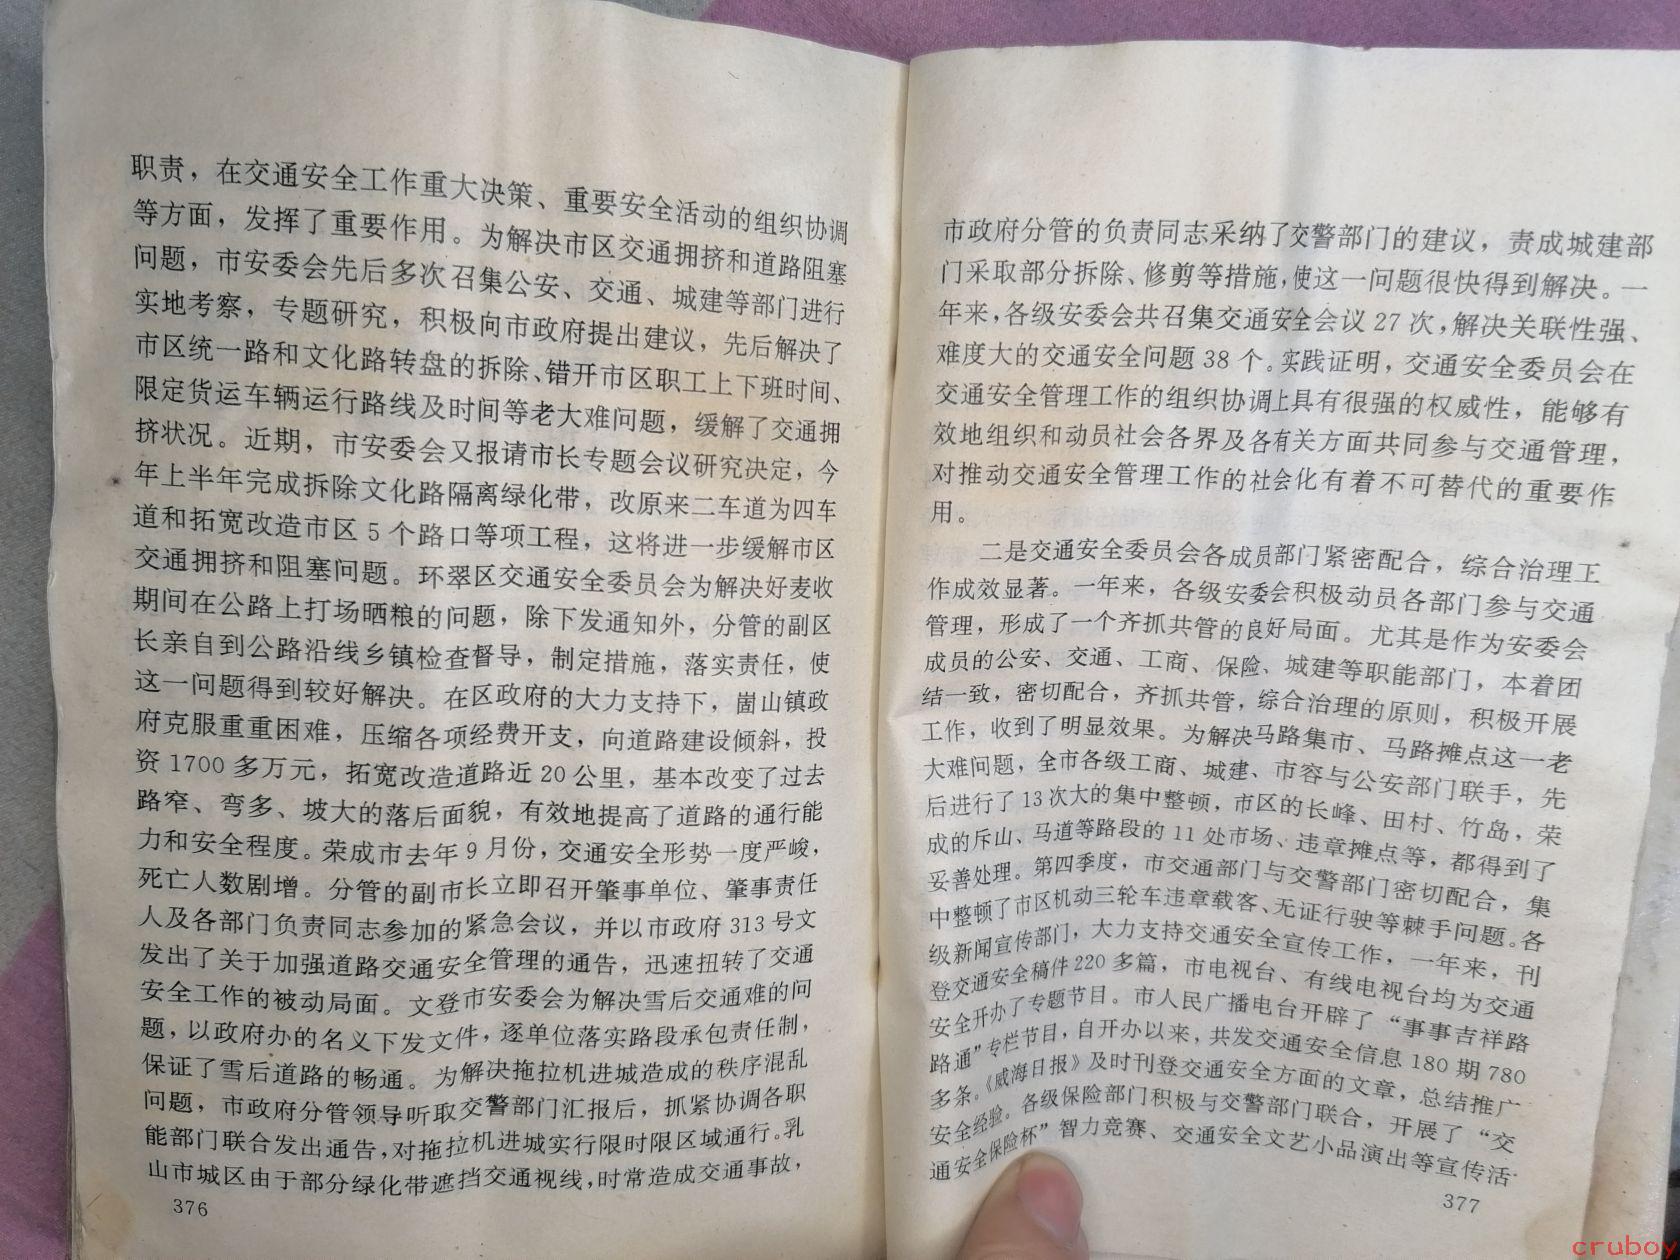 职责，在交通安全工作重大决策、重要安全活动的组织协调
等方面，发挥了重要作用。为解决市区交通拥挤和道路阻塞
问题，市安委会先后多次召集公安、交通、城建等部门进行
实地考察，专题研究，积极向市政府提出建议，先后解决了
市区统一路和文化路转盘的拆除、错开市区职工上下班时间、
限定货运车辆运行路线及时间等老大难问题，缓解了交通拥
挤状况。近期，市安委会又报请市长专题会议研究决定，今
年上半年完成拆除文化路隔离绿化带，改原来二车道为四车
道和拓宽改造市区5个路口等项工程，这将进一步缓解市区
交通拥挤和阻塞问题。环翠区交通安全委员会为解决好麦收
期间在公路上打场晒粮的问题，除下发通知外，分管的副区
长亲自到公路沿线乡镇检查督导，制定措施，落实责任，使
这一问题得到较好解决。在区政府的大力支持下，崮山镇政
府克服重重困难，压缩各项经费开支，向道路建设倾斜，投
资1700多万元，拓宽改造道路近20公里，基本改变了过去
路窄、弯多、坡大的落后面貌，有效地提高了道路的通行能
力和安全程度。荣成市去年9月份，交通安全形势一度严峻，
死亡人数剧增。分管的副市长立即召开肇事单位、肇事责任
人及各部门负责同志参加的紧急会议，并以市政府313号文
发出了关于加强道路交通安全管理的通告，迅速扭转了交通
安全工作的被动局面。文登市安委会为解决雪后交通难的问
题，以政府办的名义下发文件，逐单位落实路段承包责任制，
保证了雪后道路的畅通。为解决拖拉机进城造成的秩序混乱
问题，市政府分管领导听取交警部门汇报后，抓紧协调各职
能部门联合发出通告，对拖拉机进城实行限时限区域通行。乳
山市城区由于部分绿化带遮挡交通视线，时常造成交通事故，
376
市政府分管的负责同志采纳了交警部门的建议，责成城建部
门采取部分拆除、修剪等措施，使这一问题很快得到解决。一
年来，各级安委会共召集交通安全会议27次，解决关联性强、
难度大的交通安全问题38个。实践证明，交通安全委员会在
交通安全管理工作的组织协调上具有很强的权威性，能够有
效地组织和动员社会各界及各有关方面共同参与交通管理，
对推动交通安全管理工作的社会化有着不可替代的重要作
用。
二是交通安全委员会各成员部门紧密配合，综合治理工
作成效显著。一年来，各级安委会积极动员各部门参与交通
管理，形成了一个齐抓共管的良好局面。尤其是作为安委会
成员的公安、交通、工商、保险、城建等职能部门，本着团
结一致，密切配合，齐抓共管，综合治理的原则，积极开展
工作，收到了明显效果。为解决马路集市、马路摊点这一老
大难问题，全市各级工商、城建、市容与公安部门联手，先
后进行了13次大的集中整顿，市区的长峰、田村、竹岛，荣
成的斥山、马道等路段的11处市场、违章摊点等，都得到了
妥善处理。第四季度，市交通部门与交警部门密切配合，集
中整顿了市区机动三轮车违章载客、无证行驶等棘手问题。各
级新闻宣传部门，大力支持交通安全宣传工作，一年来，刊
登交通安全稿件220多篇，市电视台、有线电视台均为交通
安全开办了专题节目。市人民广播电台开辟了“事事吉祥路
路通”专栏节目，自开办以来，共发交通安全信息180期780
多条。《威海日报》及时刊登交通安全方面的文章，总结推广
安全经验。各级保险部门积极与交警部门联合，开展了“交
通安全保险杯”智力竞赛、交通安全文艺小品演出等宣传活
377
cruboy